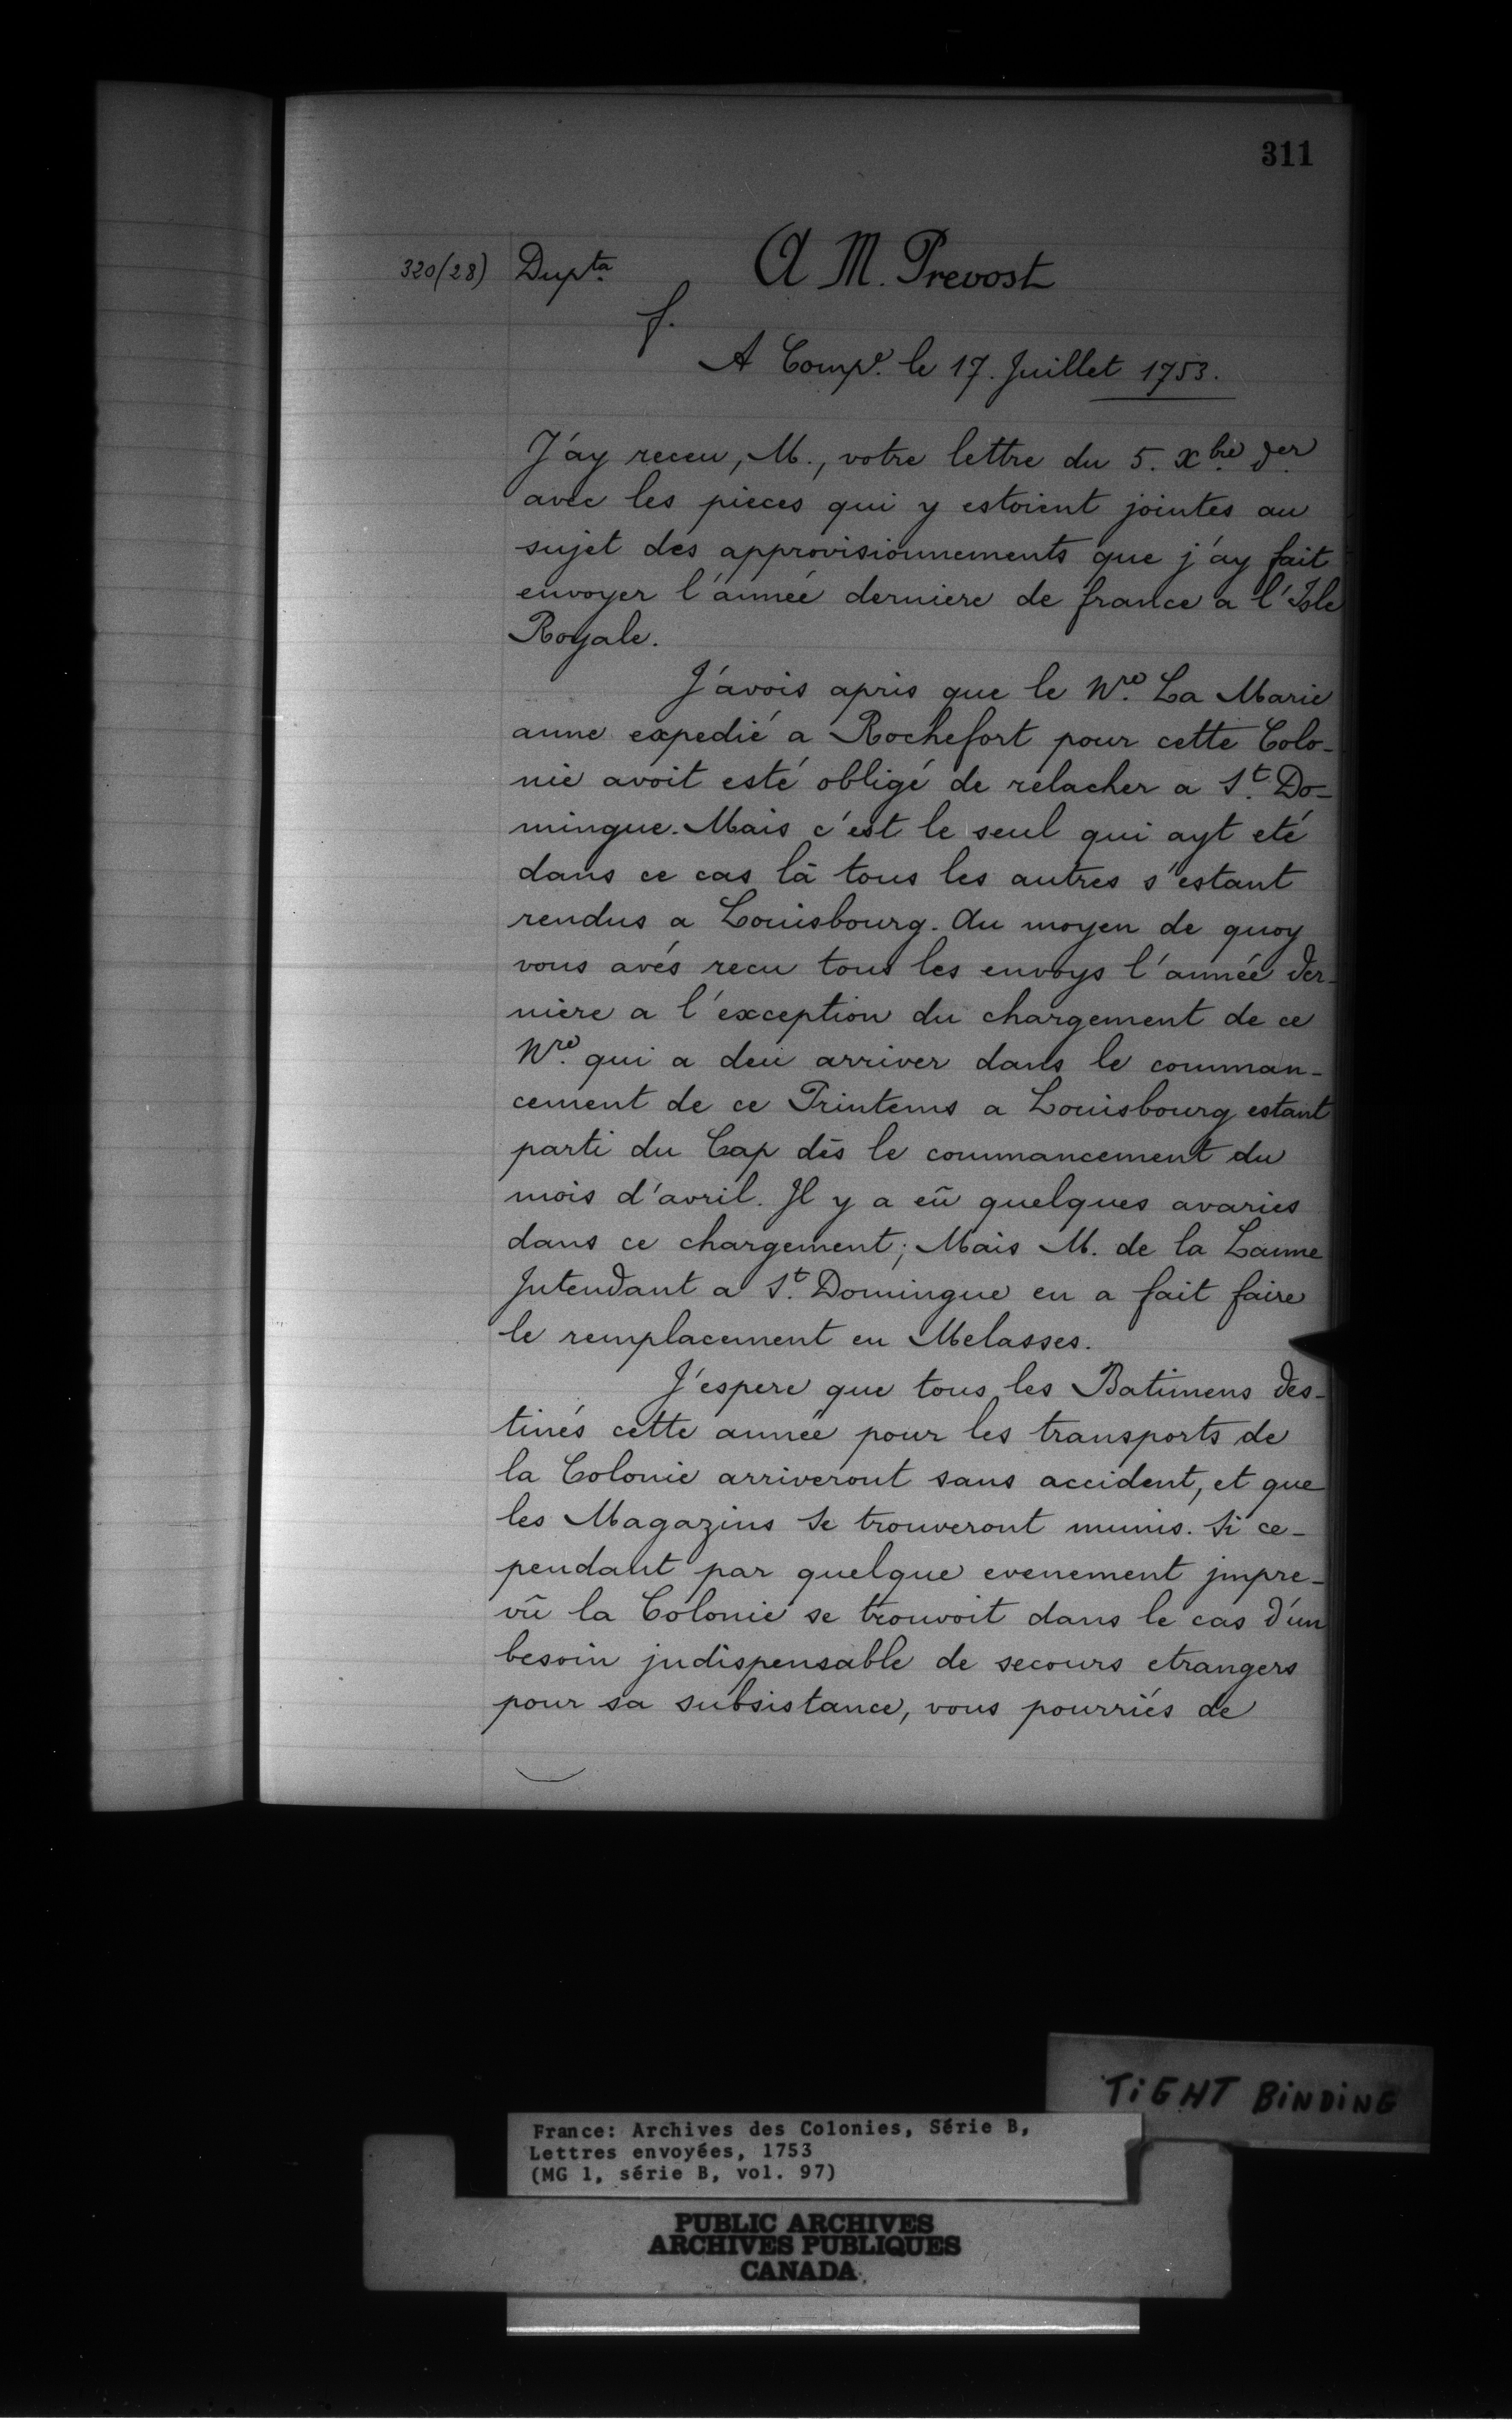 311
320(28) Dupta A M. Prevost
f.
A Comp.e le 17. Juillet 1753.
J'ay receu, M., votre lettre du 5. Xbre der
avec les pieces qui y estoient jointes au
sujet des approvisionnements que j'ay fait
envoyer l'année derniere de france a l'Isle
Royale.
J'avois apris que le Nre La Marie
anne expedié a Rochefort pour cette Colo-
nie avoit esté obligé de relacher a St. Do-
mingue. Mais c'est le seul qui ayt eté
dans ce cas là tous les autres s'estant
rendus a Louisbourg. Au moyen de quoy
vous avés recu tous les envoys l'année der-
niere a l'exception du chargement de ce
Nre qui a deu arriver dans le comman-
cement de ce Printems a Louisbourg estant
parti du Cap dès le commancement du
mois d'avril. Il y a eû quelques avaries
dans ce chargement; Mais M. de la Lanne
Intendant a St. Domingue en a fait faire
le remplacement en Melasses.
J'espere que tous les Batimens des-
tinés cette année pour les transports de
la Colonie arriveront sans accident, et que
les Magazins se trouveront munis. Si ce-
pendant par quelque evenement jmpre-
vû la Colonie se trouvoit dans le cas d'un
besoin jndispensable de secours etrangers
pour sa subsistance, vous pourriés de
TiGHT BiNDiNG
France: Archives des Colonies, Série B,
Lettres envoyées, 1753
(MG 1, série B, vol. 97)
PUBLIC ARCHIVES
ARCHIVES PUBLIQUES
CANADA